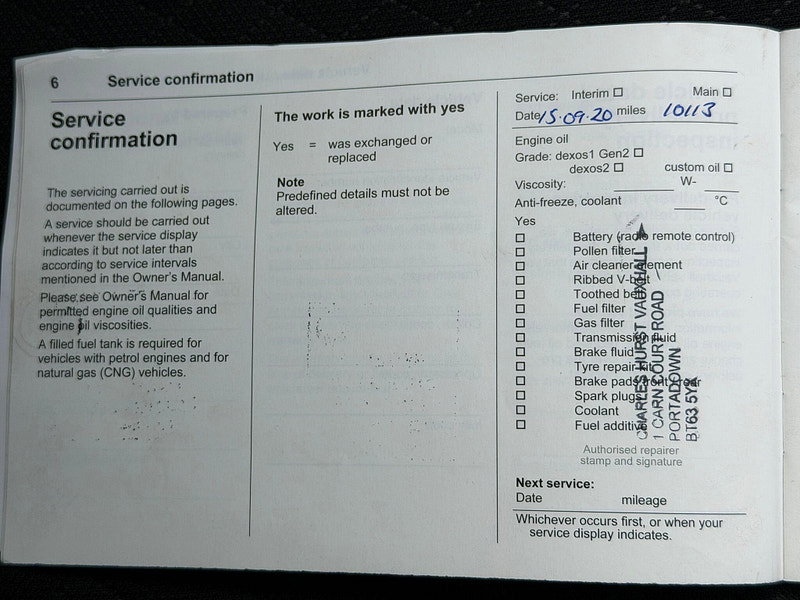 6 Service confirmation
Service
confirmation
The servicing carried out is
documented on the following pages.
A service should be carried out
whenever the service display
indicates it but not later than
according to service intervals
mentioned in the Owner's Manual.
Please see Owner's Manual for
permitted engine oil qualities and
engine oil viscosities.
A filled fuel tank is required for
vehicles with petrol engines and for
natural gas (CNG) vehicles.
The work is marked with yes
Yes = was exchanged or
replaced
Note
Predefined details must not be
altered.
Service: Interim ☐ Main ☐
Date 15.09.20 miles 10113
Engine oil
Grade: dexos1 Gen2 ☐
dexos2 ☐ custom oil ☐
Viscosity: W-
Anti-freeze, coolant °C
Yes
☐ Battery (radio remote control)
☐ Pollen filter
☐ Air cleaner element
☐ Ribbed V-belt
☐ Toothed belt
☐ Fuel filter
☐ Gas filter
☐ Transmission fluid
☐ Brake fluid
☐ Tyre repair kit
☐ Brake pads front/rear
☐ Spark plugs
☐ Coolant
☐ Fuel additive
CHARLES HURST VAUXHALL
1 CARN COURT ROAD
PORTADOWN
BT63 5YX
Authorised repairer
stamp and signature
Next service:
Date mileage
Whichever occurs first, or when your
service display indicates.